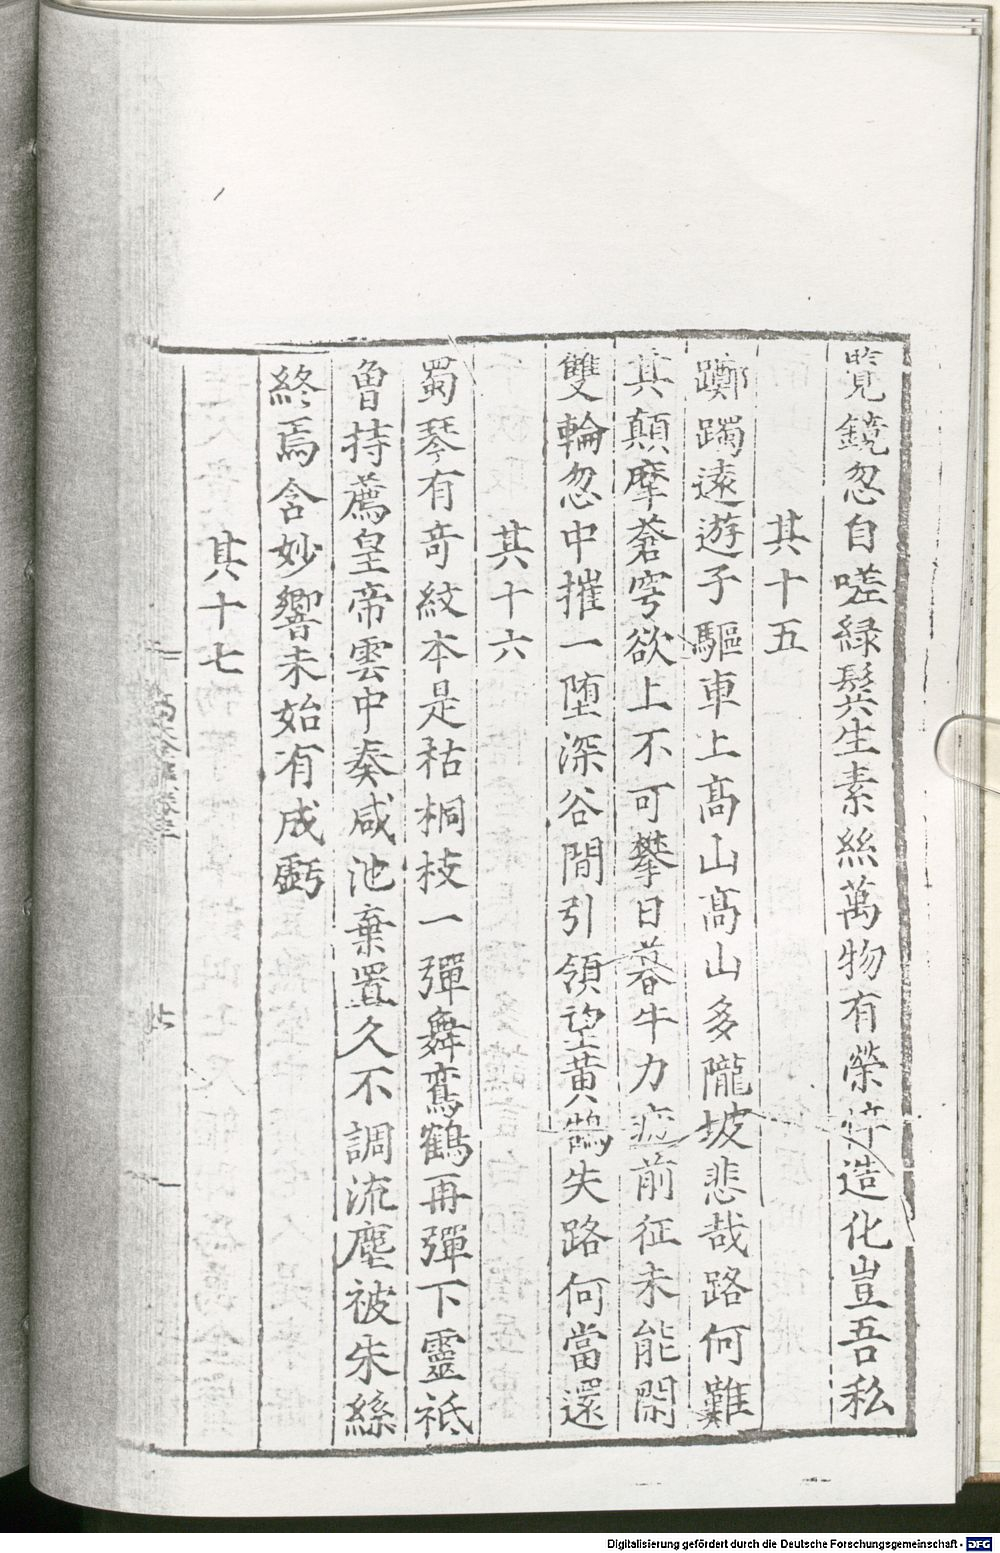 覽鏡忽自嗟緑鬂生素絲萬物有榮悴造化豈吾私
其十五
躑躅遠遊子驅車上髙山髙山多隴坡悲哉路何難
其顛摩蒼穹欲上不可攀日暮牛力疲前征未能閑
雙輪忽中摧一堕深谷間引領望黄鵠失路何當還
其十六
蜀琴有竒紋本是枯桐枝一彈舞鸞鶴再彈下靈祇
魯持薦皇帝雲中奏咸池棄置久不調流塵被朱絲
終焉含妙響未始有成虧
其十七
Digitalisierung gefördert durch die Deutsche Forschungsgemeinschaft - DFG